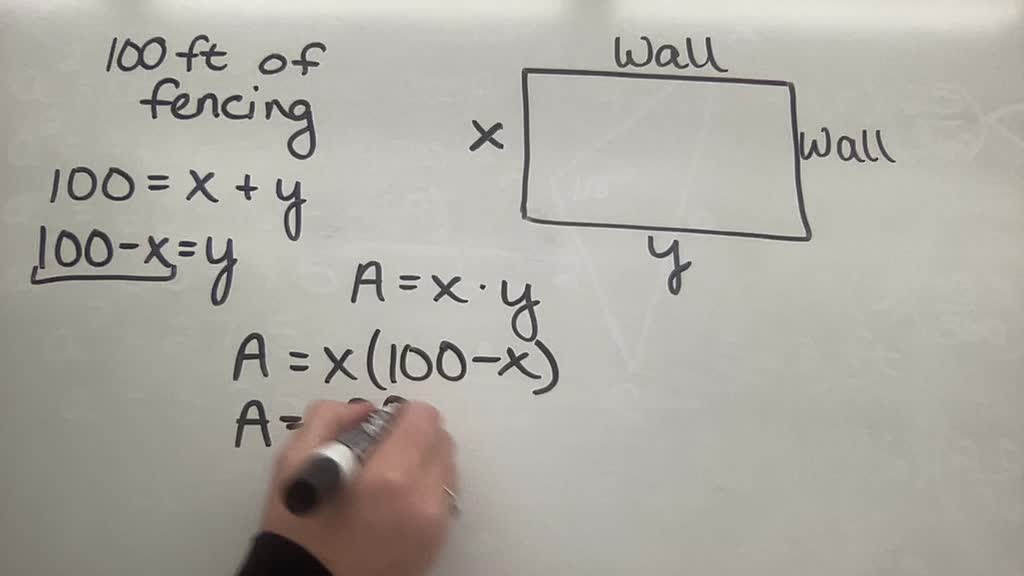 100 ft of
fencing
100 = x + y
100 - x = y
Wall
x
Wall
y
A = x · y
A = x(100 - x)
A =